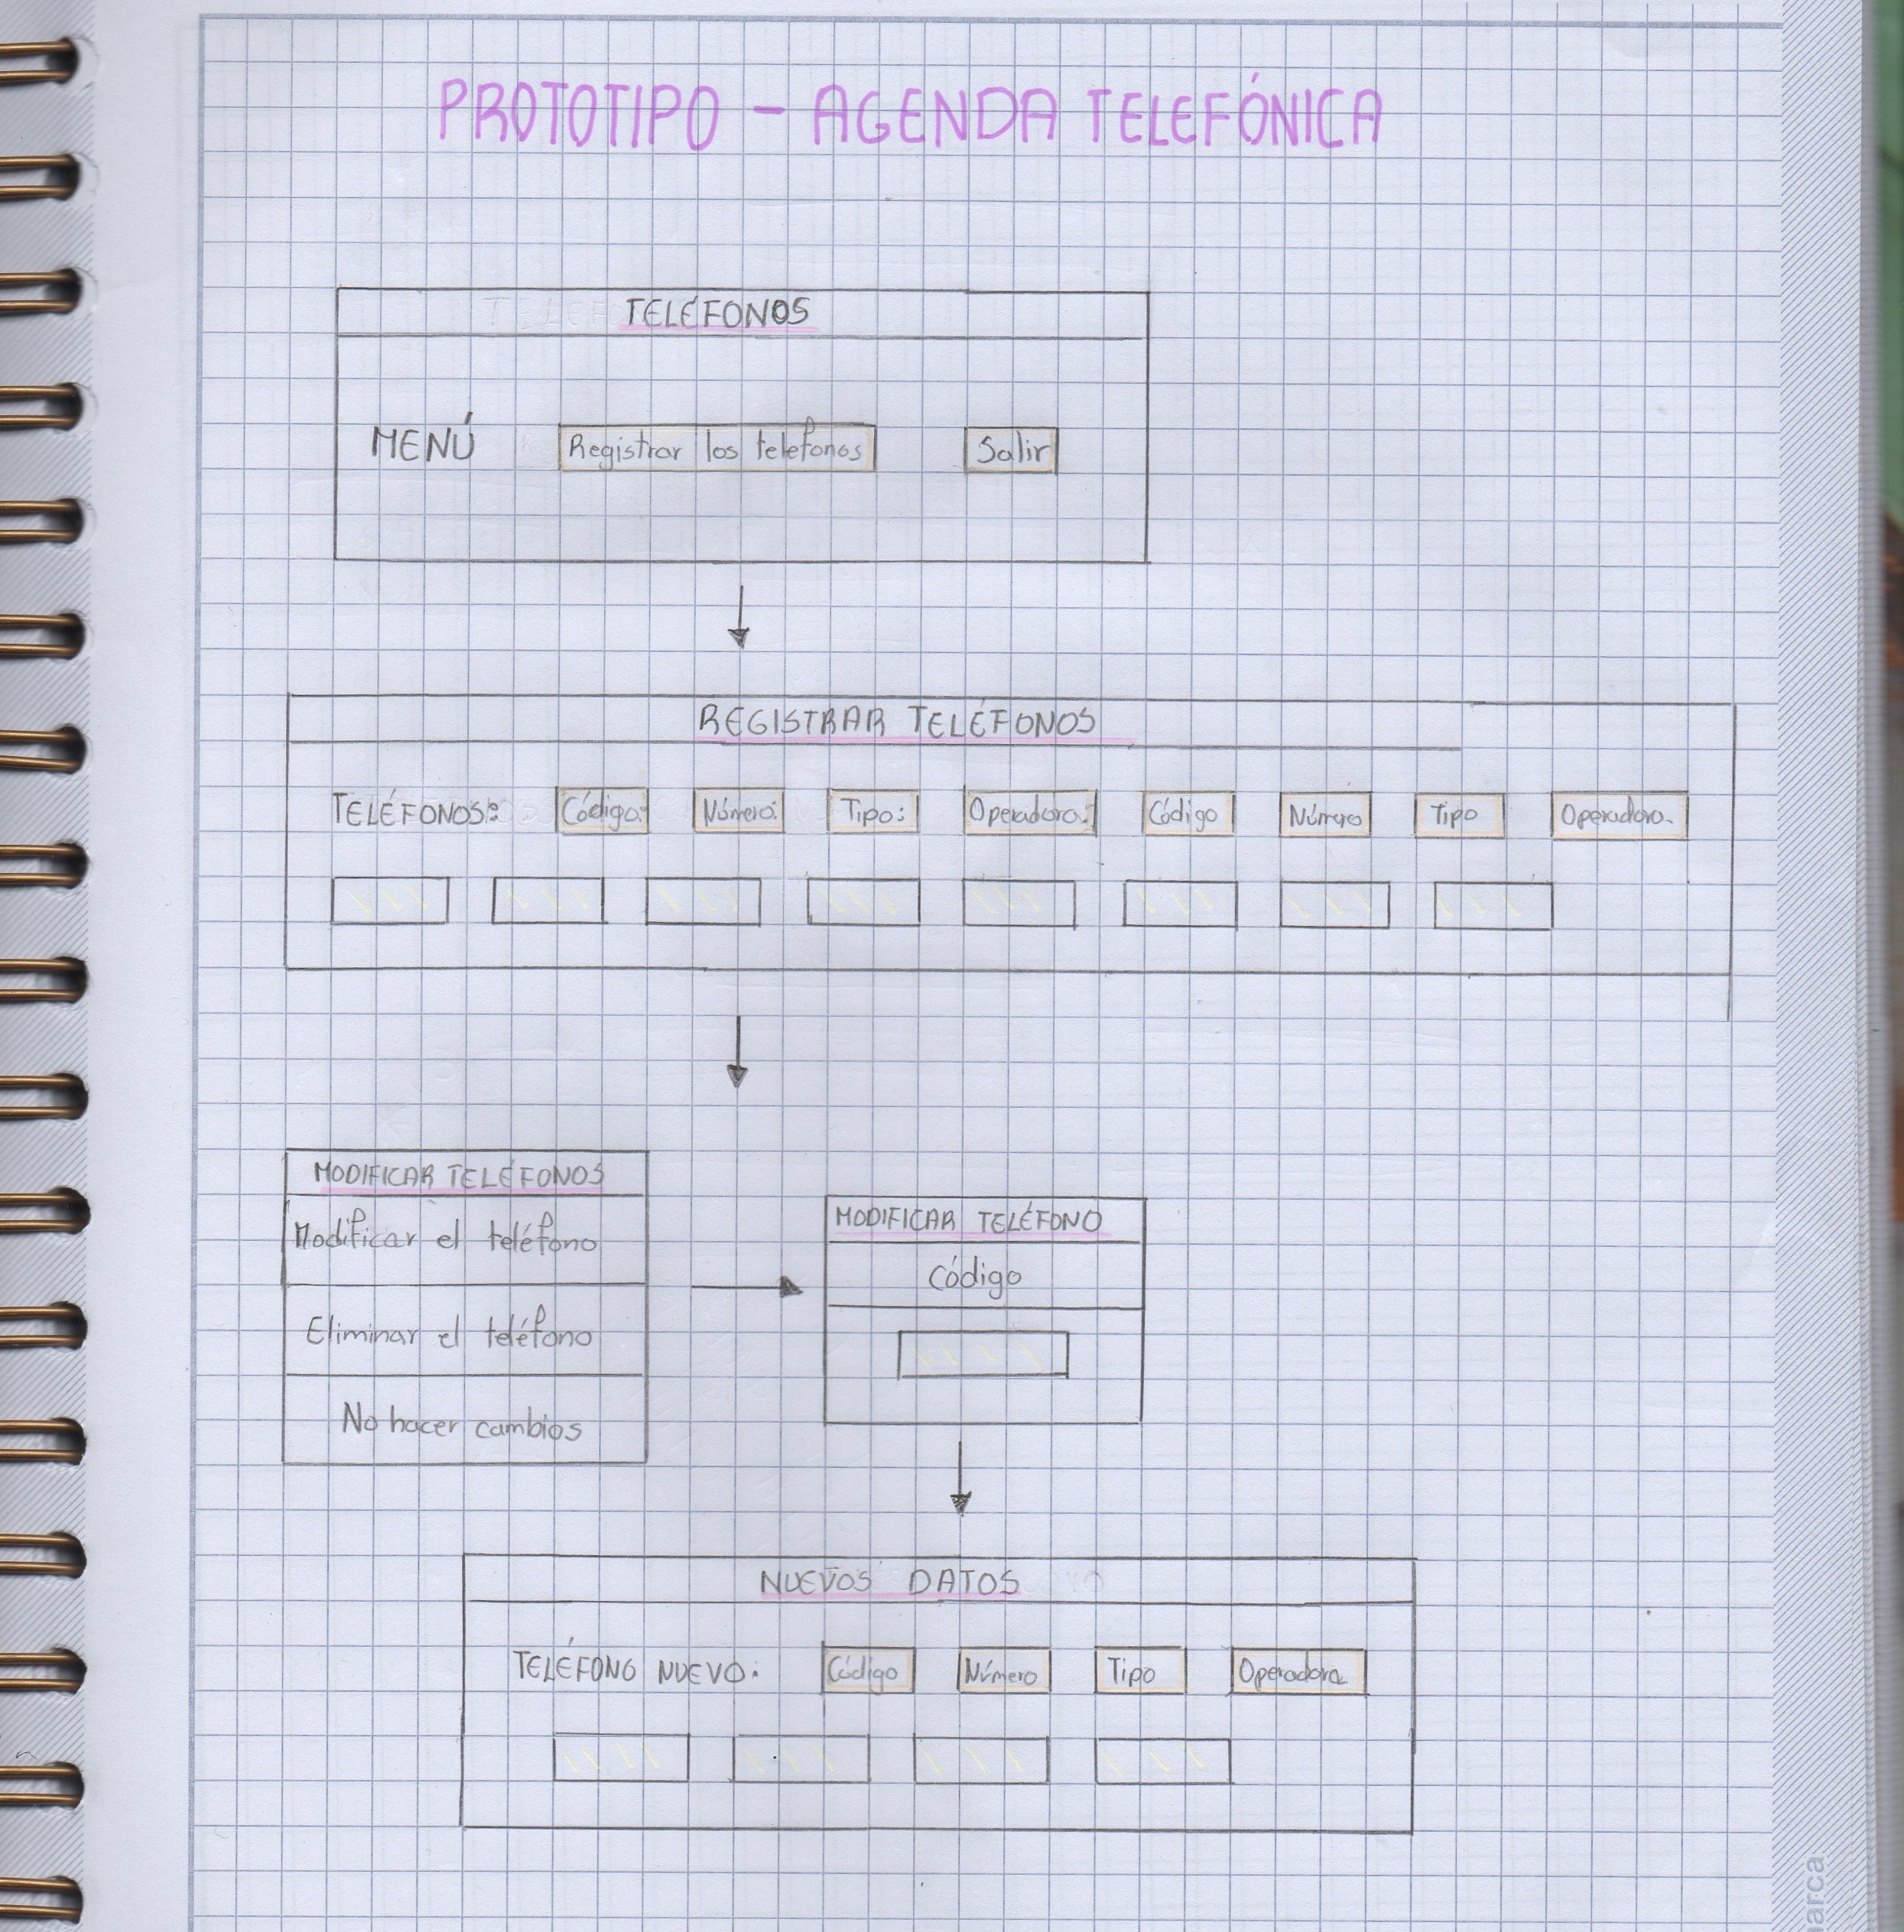 PROTOTIPO - AGENDA TELEFÓNICA
TELÉFONOS
MENÚ Registrar los telefonos Salir
REGISTRAR TELÉFONOS
TELÉFONOS: Código: Número: Tipo: Operadora: Código Número Tipo Operadora
MODIFICAR TELÉFONOS
Modificar el teléfono
Eliminar el teléfono
No hacer cambios
MODIFICAR TELÉFONO
Código
NUEVOS DATOS
TELÉFONO NUEVO: Código Número Tipo Operadora